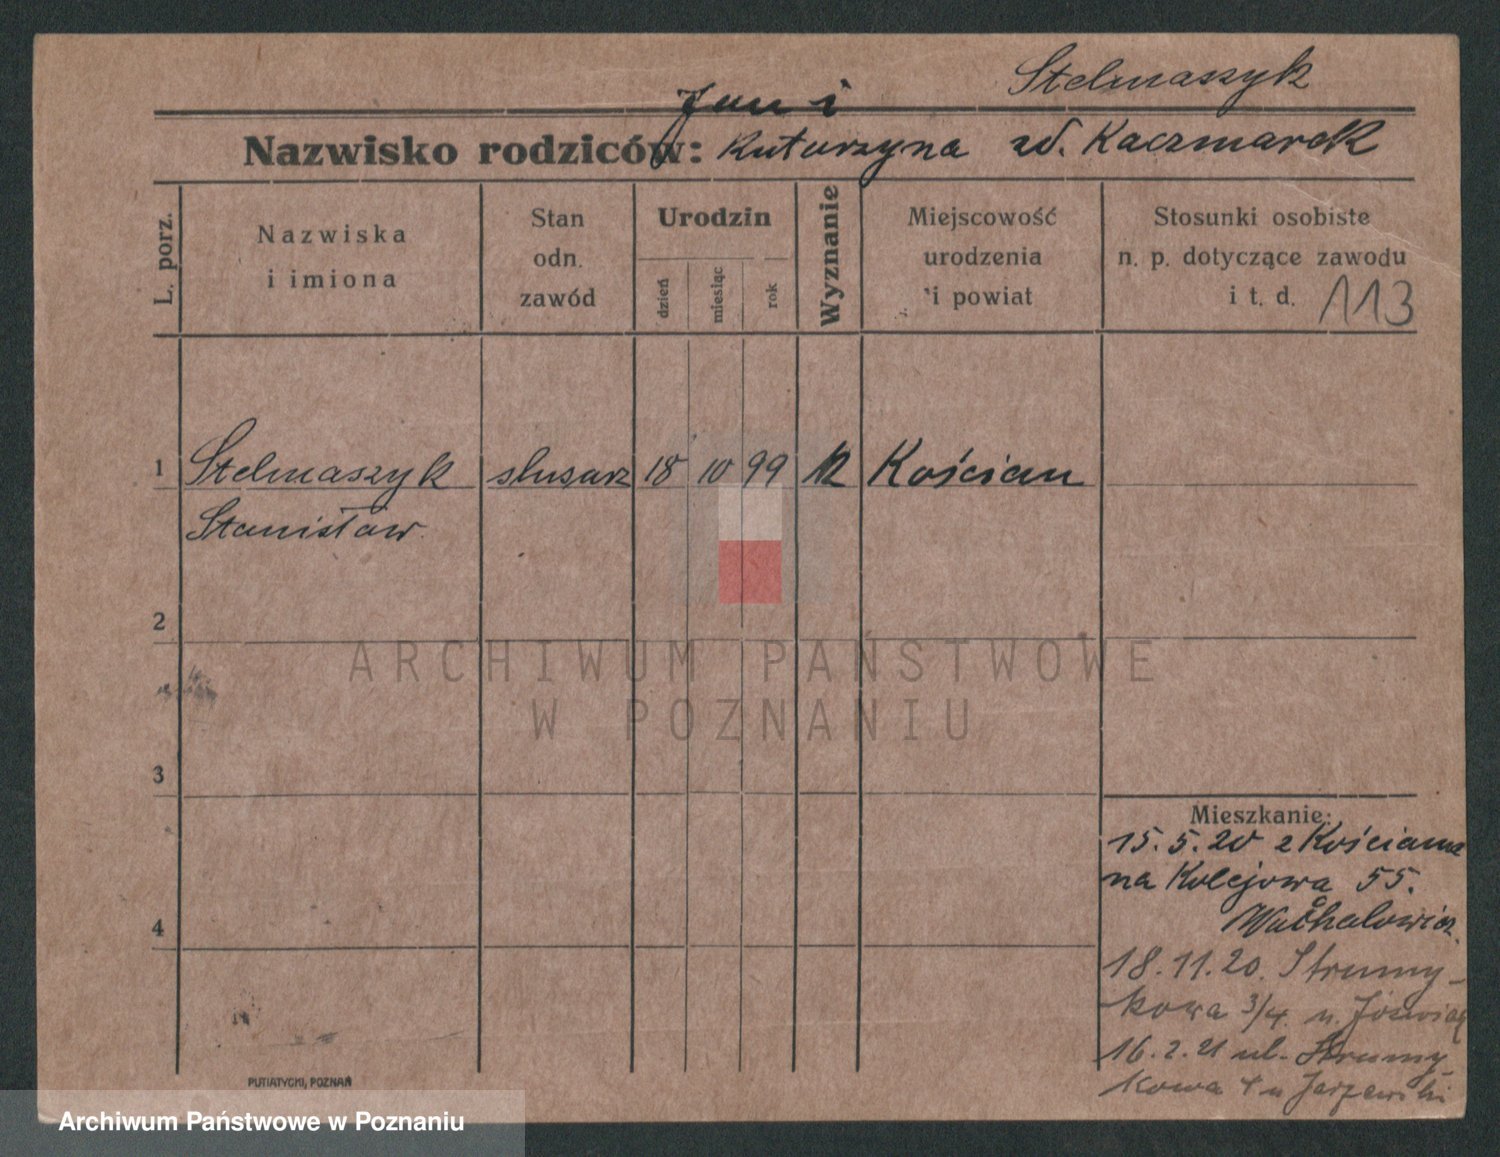 Stelmaszyk
Jan i
Nazwisko rodziców: Katarzyna zd. Kaczmarek
L. porz.
Nazwiska
i imiona
Stan
odn.
zawód
Urodzin
dzień
miesiąc
rok
Wyznanie
Miejscowość
urodzenia
i powiat
Stosunki osobiste
n. p. dotyczące zawodu
i t. d. 113
1 Stelmaszyk ślusarz 18 10 99 k Kościan
Stanisław
2
ARCHIWUM PAŃSTWOWE
W POZNANIU
3
Mieszkanie:
15.5.20 z Kościana
na Kolejowa 55.
4
18.11.20. Strumy-
kowa 3/4 u.
16.2.21 ul. Strumy-
kowa 4 u
PUTIATYCKI, POZNAŃ
Archiwum Państwowe w Poznaniu